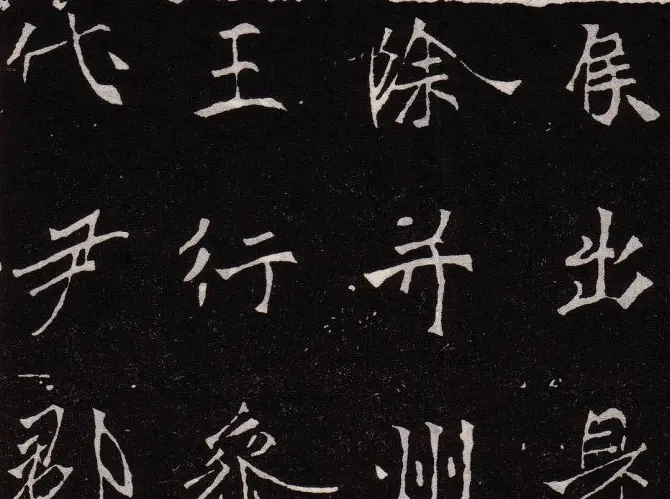 侯出具
除并州
王行參
代尹郡